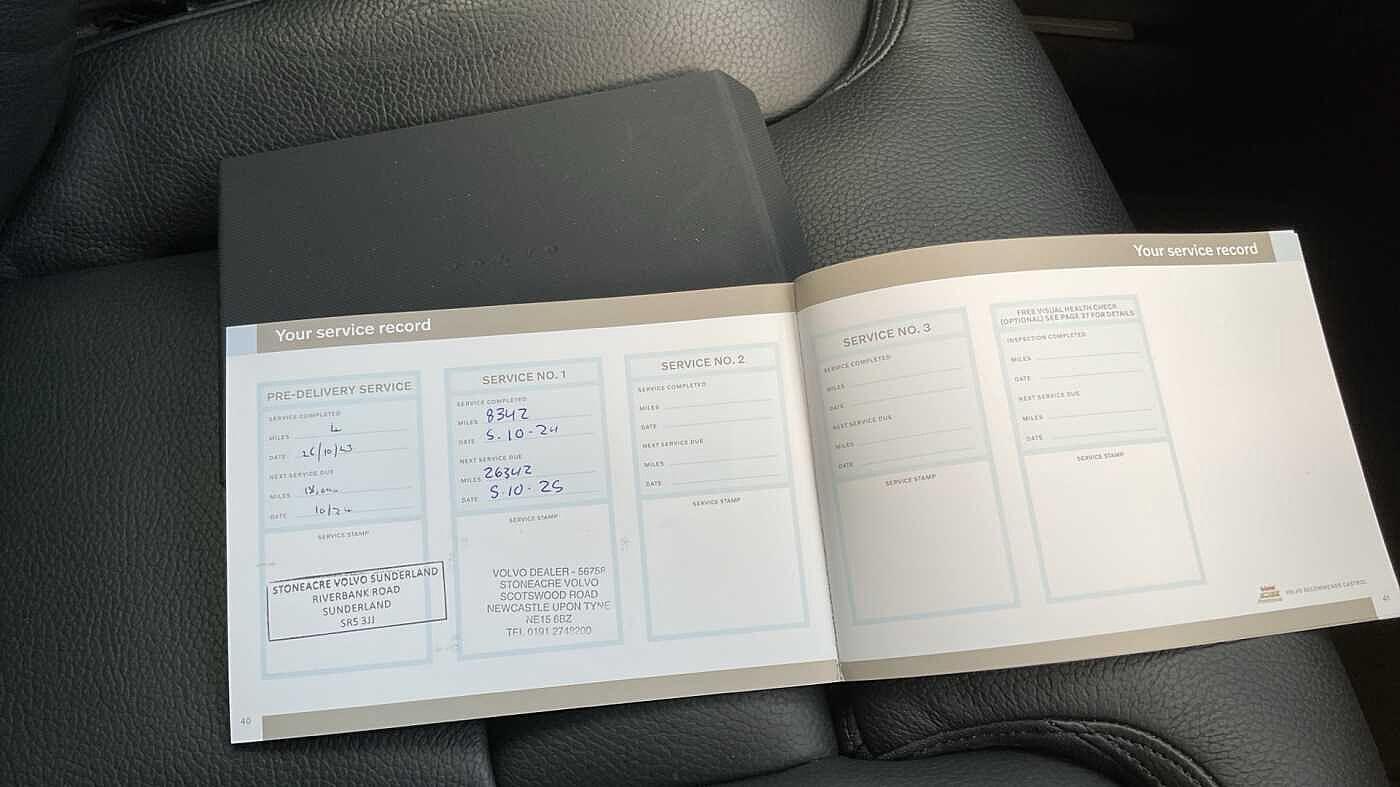 Your service record
PRE-DELIVERY SERVICE
SERVICE COMPLETED
MILES 4
DATE 26/10/23
NEXT SERVICE DUE
MILES
DATE 10/24
SERVICE STAMP
STONEACRE VOLVO SUNDERLAND
RIVERBANK ROAD
SUNDERLAND
SR5 3JJ
SERVICE NO. 1
SERVICE COMPLETED
MILES 8342
DATE 5.10-24
NEXT SERVICE DUE
MILES 26342
DATE 5.10-25
SERVICE STAMP
VOLVO DEALER - 56758
STONEACRE VOLVO
SCOTSWOOD ROAD
NEWCASTLE UPON TYNE
NE15 6BZ
TEL 0191 2748200
SERVICE NO. 2
SERVICE COMPLETED
MILES
DATE
NEXT SERVICE DUE
MILES
DATE
SERVICE STAMP
40
Your service record
SERVICE NO. 3
SERVICE COMPLETED
MILES
DATE
NEXT SERVICE DUE
MILES
DATE
SERVICE STAMP
FREE VISUAL HEALTH CHECK
(OPTIONAL) SEE PAGE 37 FOR DETAILS
INSPECTION COMPLETED
MILES
DATE
NEXT SERVICE DUE
MILES
DATE
SERVICE STAMP
VOLVO RECOMMENDS CASTROL
41